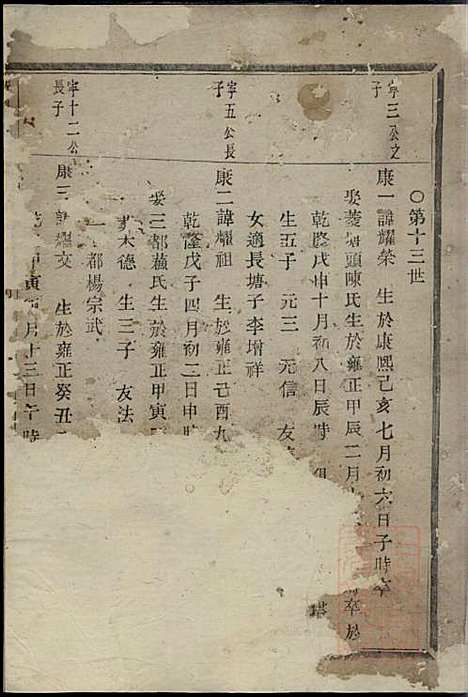 ○第十三世
字三公之子
康一諱耀榮 生於康熙己亥七月初六日子時卒
娶菱塘頭陳氏生於雍正甲辰二月 卒於
乾隆戊申十月初八日辰時
生五子 元三 元信 友
女適長塘子李增祥
字五公長子
康二諱耀祖 生於雍正己酉九
乾隆戊子四月初二日申時
娶三都蘇氏生於雍正甲寅
木德 生三子 友法
一 都楊宗武
字十二公長子
康三諱耀文 生於雍正癸丑
寅 月十三日午時